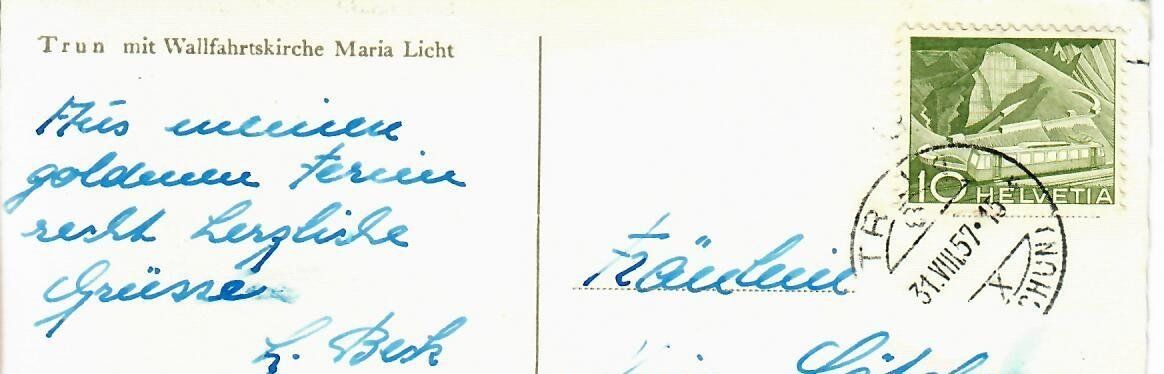 Trun mit Wallfahrtskirche Maria Licht
Aus meinen
goldenen Ferien
recht herzliche
Grüsse
L. Beck
Fräulein
10 HELVETIA
31.VIII.57.-15